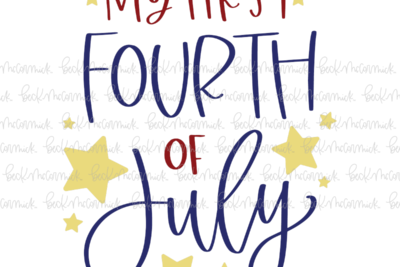 MY FIRST
FOURTH
OF
July